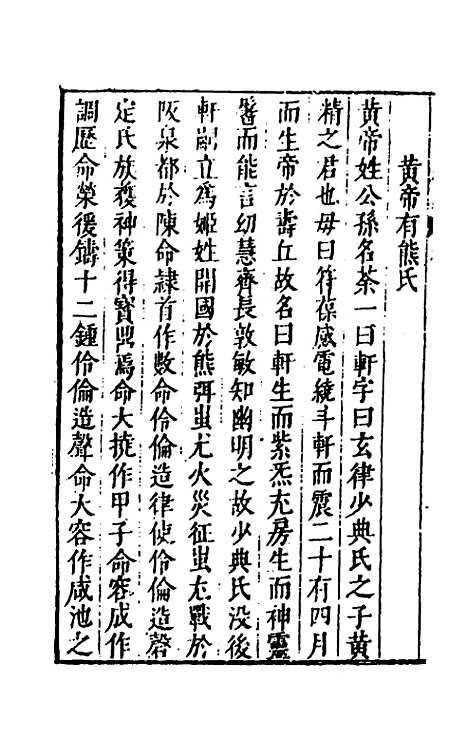 黄帝有熊氏
黄帝姓公孫名荼一曰軒字曰玄律少典氏之子黄
精之君也母曰符葆感電繞斗軒而震二十有四月
而生帝於壽丘故名曰軒生而紫炁充房生而神靈
弱而能言幼慧齊長敦敏知幽明之故少典氏没後
軒嗣立為姬姓開國於熊弭蚩尤火災征蚩尤戰於
阪泉都於陳命隷首作數命伶倫造律使伶倫造磬
定氏族獲神策得寳鼎焉命大撓作甲子命容成作
調歷命榮援鑄十二鍾伶倫造聲命大容作咸池之